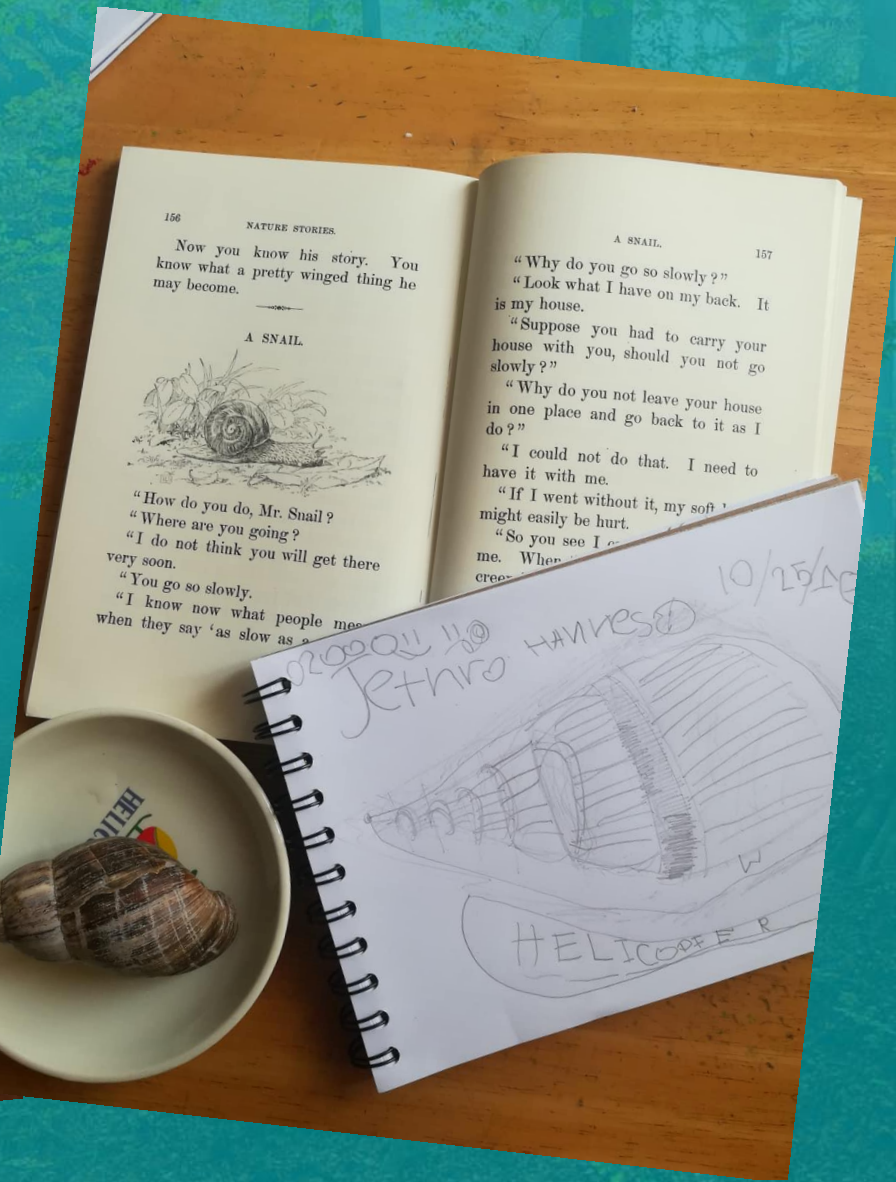 156
NATURE STORIES.
Now you know his story. You
know what a pretty winged thing he
may become.
A SNAIL.
“How do you do, Mr. Snail?
“Where are you going?
“I do not think you will get there
very soon.
“You go so slowly.
“I know now what people
when they say ‘as slow as a
A SNAIL.
157
“Why do you go so slowly?”
“Look what I have on my back. It
is my house.
“Suppose you had to carry your
house with you, should you not go
slowly?”
“Why do you not leave your house
in one place and go back to it as I
do?”
“I could not do that. I need to
have it with me.
“If I went without it, my soft
might easily be hurt.
“So you see I
me. When
Jethro
10/25/
W
HELIC